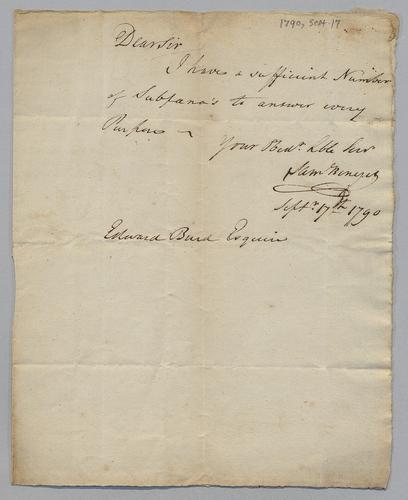 1790, Sept 17
Dear Sir
I have a sufficient Number
of Subpana's to answer every
Purpose ~
Your Obedt. Hble Serv
Saml
Septr. 17th 1790
Edward Burd Esquire